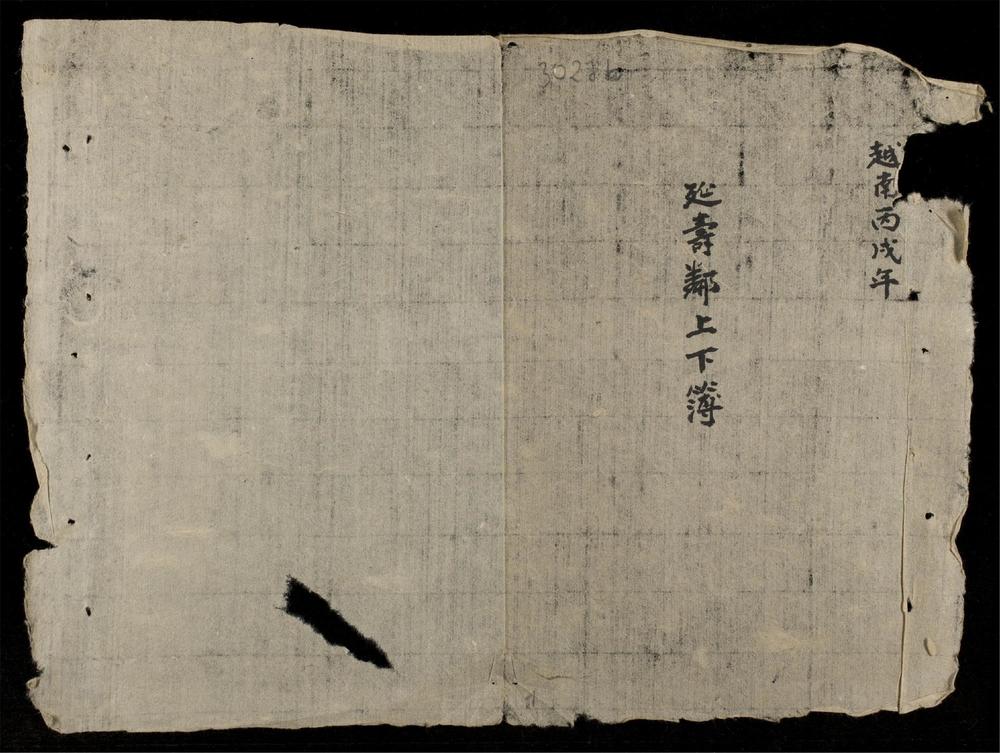 越南丙戌年
延壽鄰上下簿
3028b